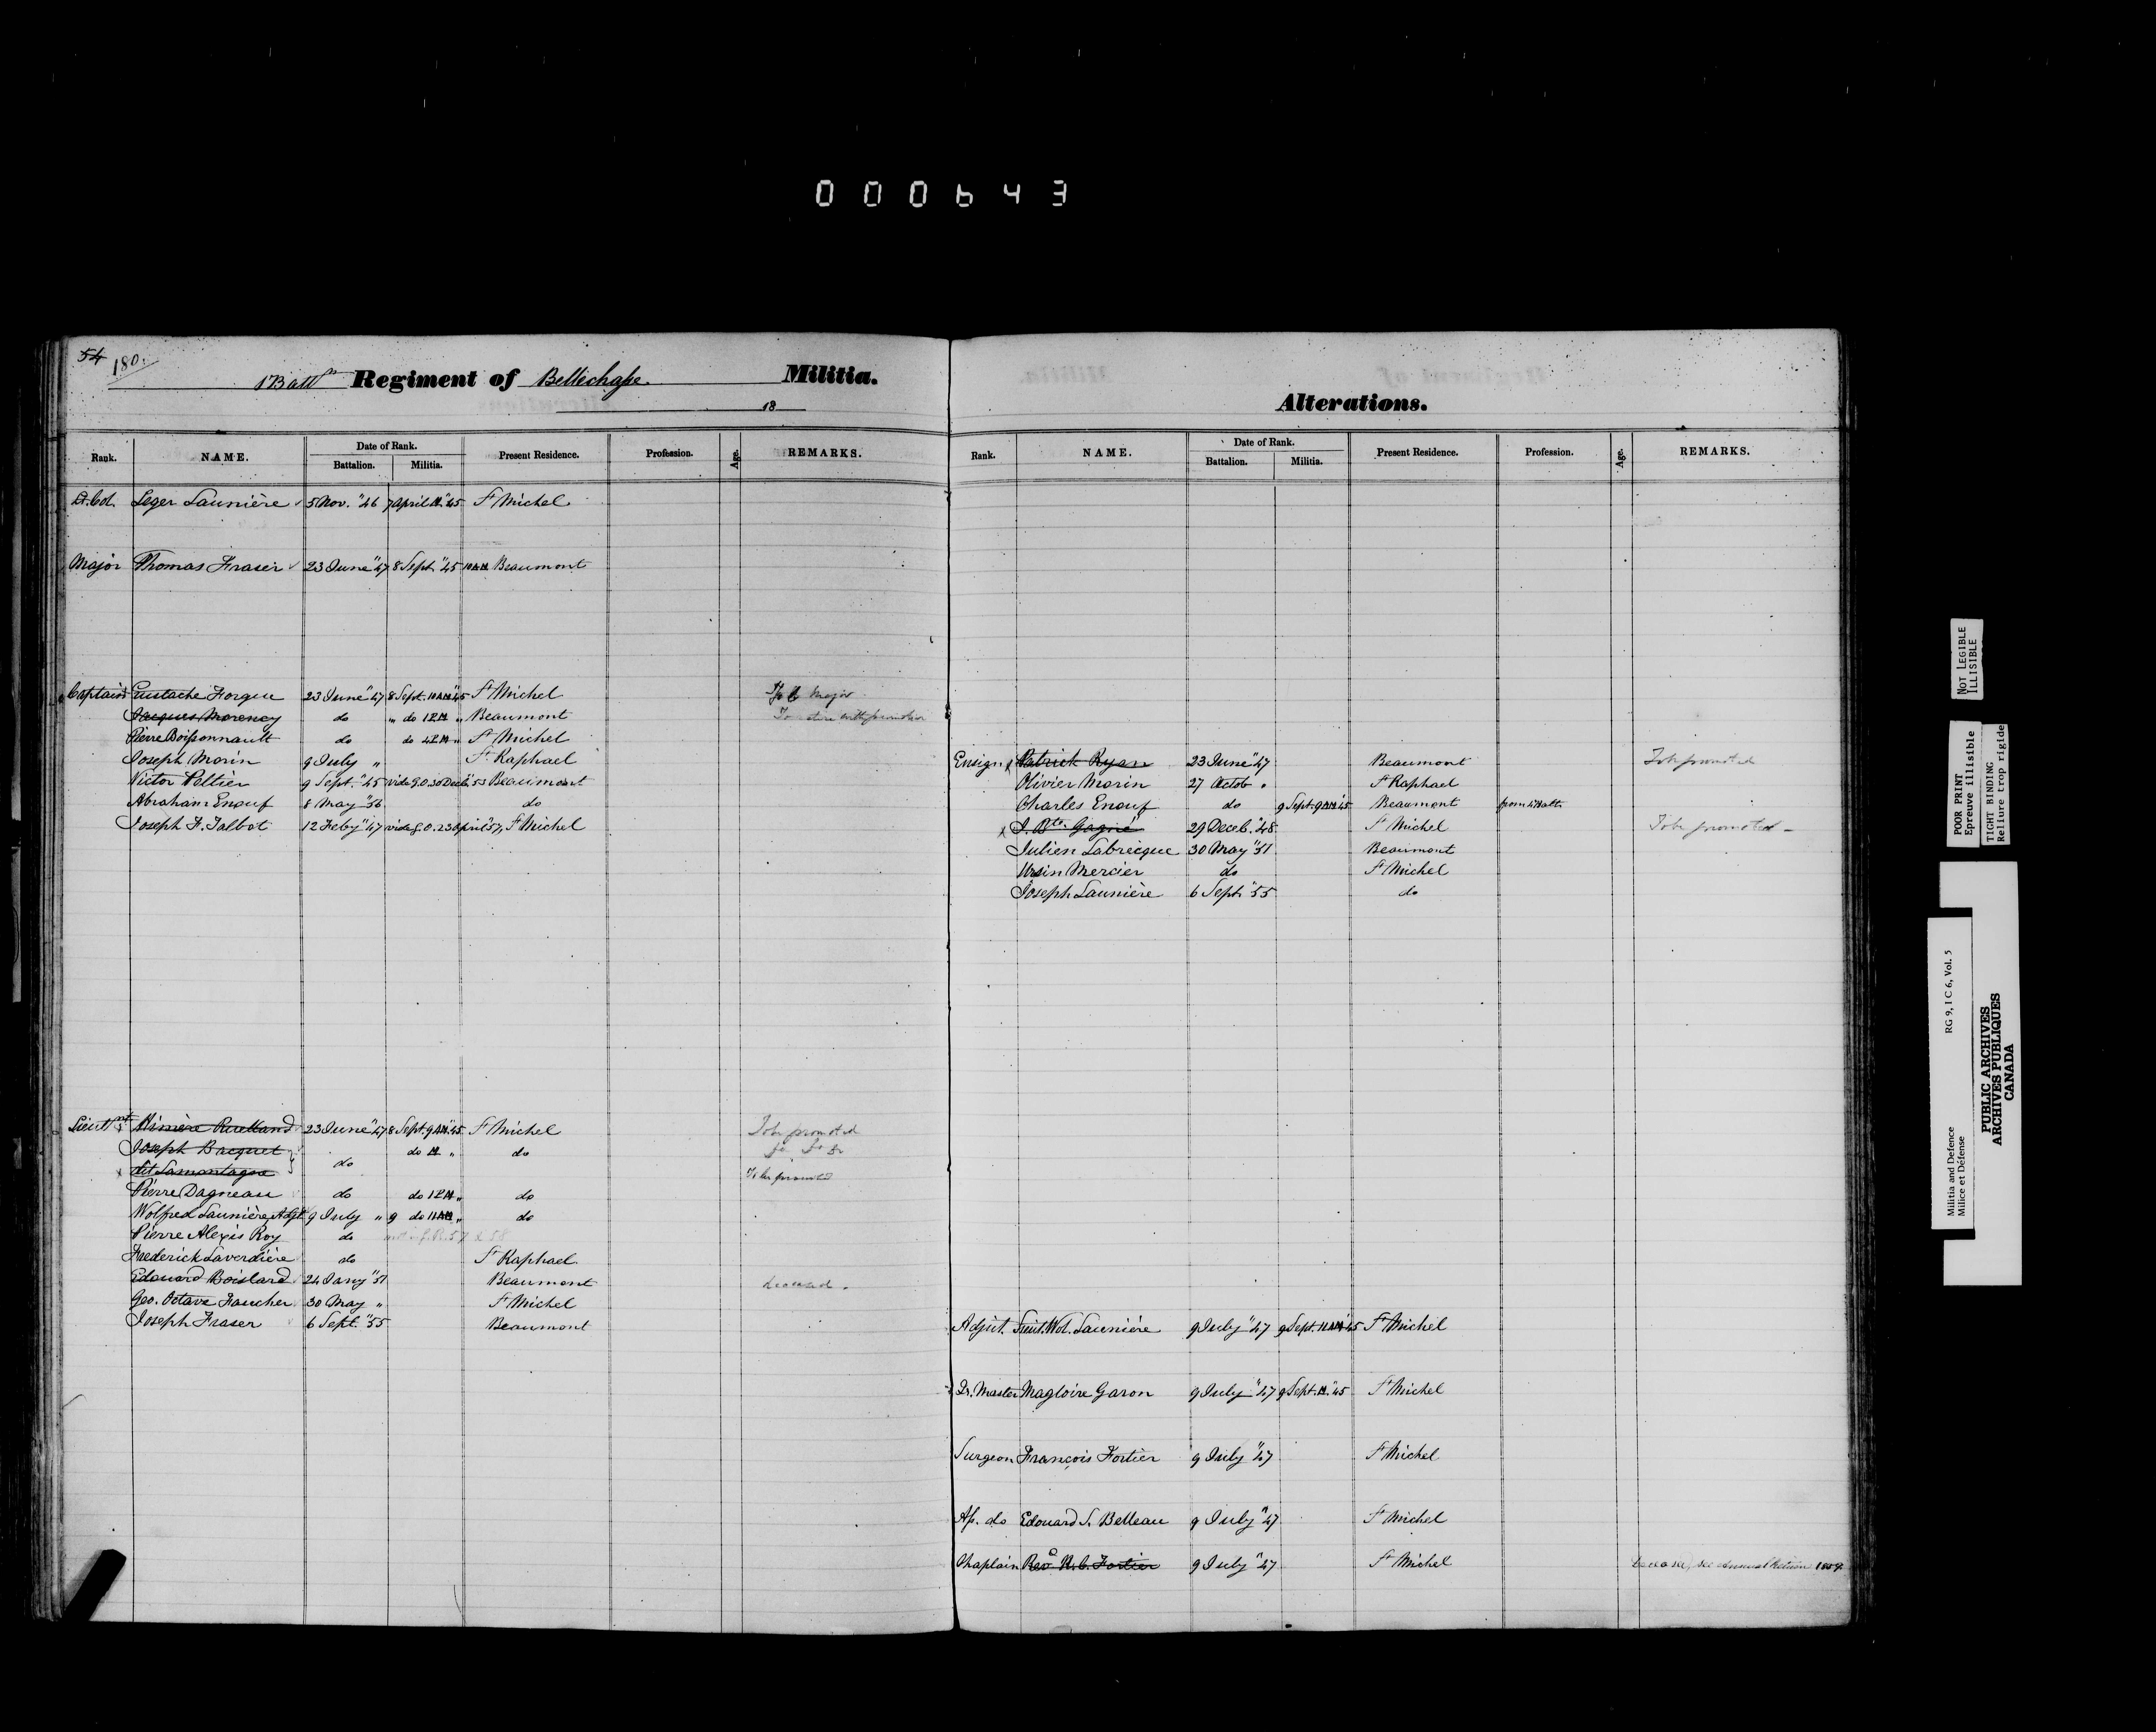 000643
54 180.
1 Battn Regiment of Bellechasse Militia.
18
Rank. NAME. Date of Rank. Battalion. Militia. Present Residence. Profession. Age. REMARKS.
Lt. Col. Leger Launière 5 Nov. "46 7 April M. "45 St Michel
Major Thomas Fraser 23 June "47 8 Sept. "45 10 AM Beaumont
Captains Eustache Forgue 23 June "47 8 Sept. 10 AM "45 St Michel To be Major
Jacques Morency do " do 12 M " Beaumont To retire with promotion
Pierre Boissonnault do do 4 PM " St Michel
Joseph Morin 9 July " St Raphael
Victor Peltier 9 Sept. "45 vide G.O. 30 Decb. "53 Beaumont
Abraham Enouf 8 May "56 do
Joseph F. Talbot 12 Feby "47 vide G.O. 23 April "57, St Michel
Lieutnts Ruelland 23 June "47 8 Sept. 9 AM "45 St Michel To be promoted
Joseph Bacquet do do M " do do do
dit Lamontagne To be promoted
Pierre Dagneau do do 12 M " do
Wolfred Launière, Adjt 9 July " 9 do 11 AM " do
Pierre Alexis Roy do
Frederick Laverdière do St Raphael
Edouard Boislard 24 Jany "51 Beaumont deceased.
Geo. Octave Faucher 30 May " St Michel
Joseph Fraser 6 Sept. "55 Beaumont
Alterations.
Rank. NAME. Date of Rank. Battalion. Militia. Present Residence. Profession. Age. REMARKS.
Ensign x Patrick Ryan 23 June "47 Beaumont To be promoted
Olivier Morin 27 Octob " St Raphael
Charles Enouf do 9 Sept. 9 AM "45 Beaumont from 4 Batt.
x J. Bte. Gagné 29 Deceb. "48 St Michel To be promoted -
Julien Labrecque 30 May "51 Beaumont
Ursin Mercier do St Michel
Joseph Launière 6 Sept. "55 do
Adjut. Lieut. Wol. Launière 9 July "47 9 Sept. 11 AM "45 St Michel
Qr. Master Magloire Garon 9 July "47 9 Sept. M. "45 St Michel
Surgeon François Fortier 9 July "47 St Michel
As. do Edouard S. Belleau 9 July "47 St Michel
Chaplain Revd N. C. Fortier 9 July "47 St Michel Deceased, see Annual Return 1859
NOT LEGIBLE
ILLISIBLE
POOR PRINT
Epreuve illisible
TIGHT BINDING
Reliure trop rigide
Militia and Defence RG 9, I C 6, Vol. 5
Milice et Défense
PUBLIC ARCHIVES
ARCHIVES PUBLIQUES
CANADA